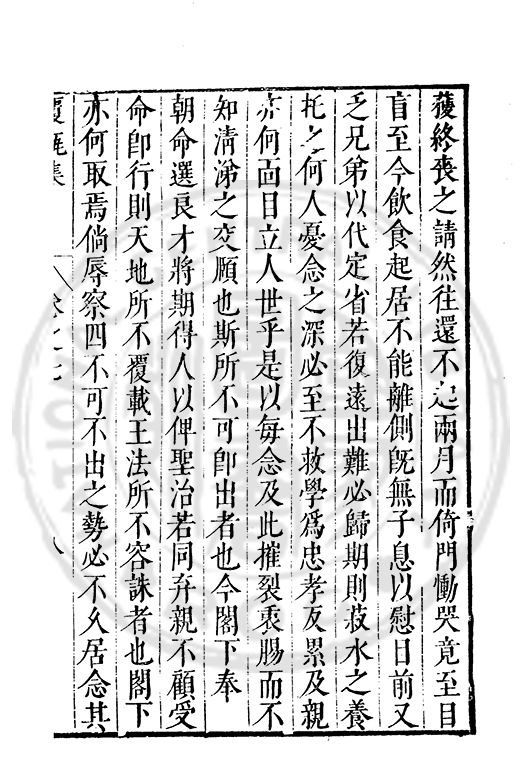 獲終喪之請然往還不迄兩月而倚門慟哭竟至目
盲至今飲食起居不能離側旣無子息以慰目前又
乏兄弟以代定省若復遠出難必歸期則菽水之養
托之何人憂念之深必至不救學爲忠孝反累及親
亦何面目立人世乎是以每念及此摧裂衷腸而不
知淸涕之交頤也斯所不可卽出者也今閣下奉
朝命選良才將期得人以俾聖治若同弃親不顧受
命卽行則天地所不覆載王法所不容誅者也閣下
亦何取焉倘辱察四不可不出之勢必不久居念其
集
卷之七
八